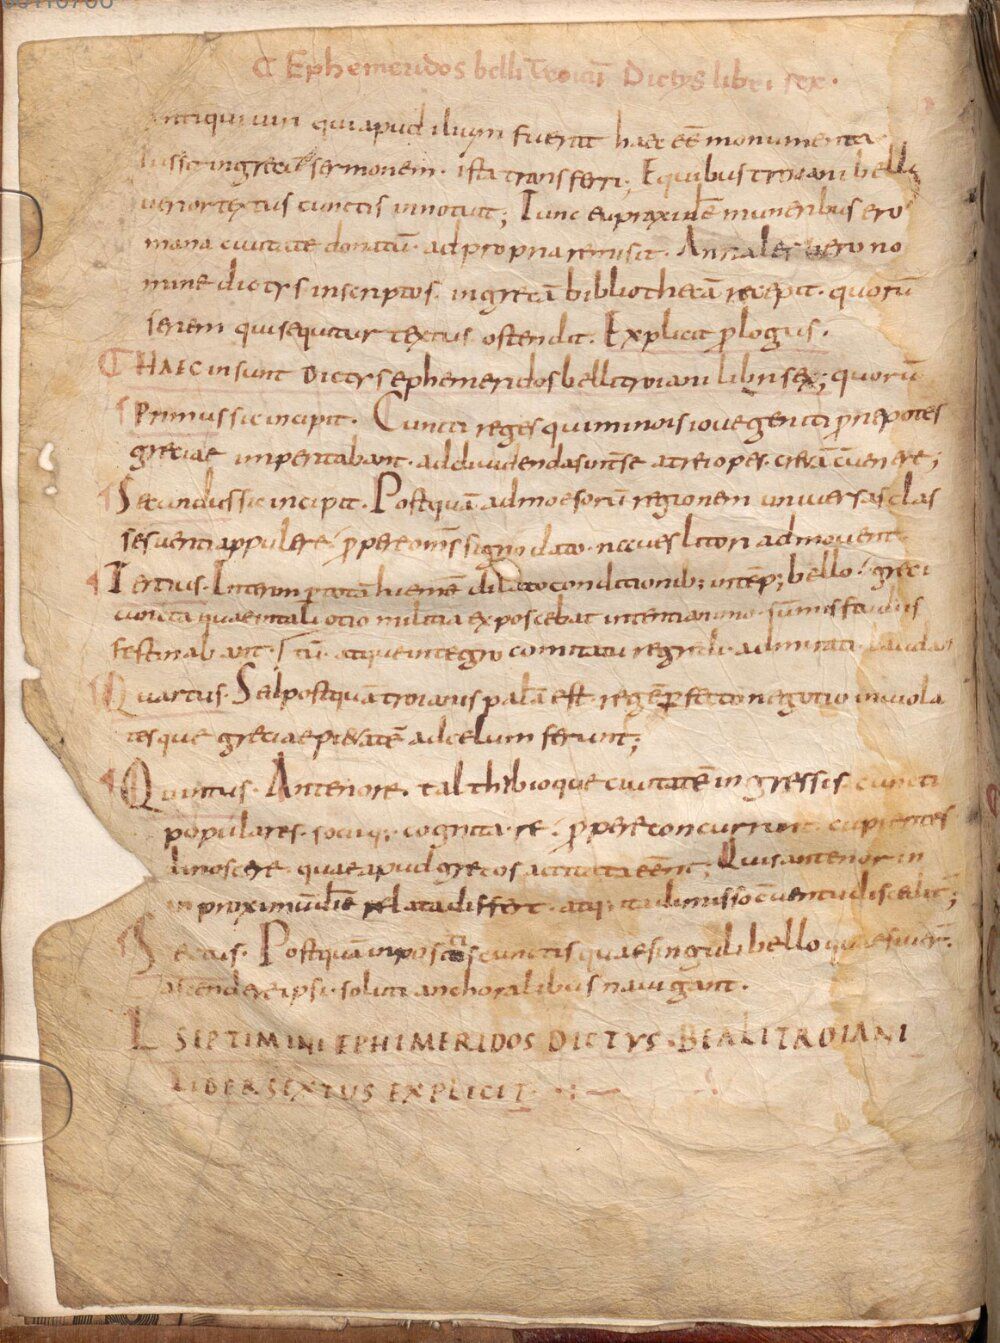 Ephemeridos belli Troiani Dictys libri sex.
antiqui uiri qui apud ilium fuerat haec eē monumenta
iussit in grecū sermonem. ista transferri; Equibus troiani belli
uerior textus cunctis innotuit; Tunc eupraxidē muneribus et ro
mana ciuitate donatū. ad propria remisit. Annales uero no
mine dictys inscriptos. in grecā bibliothecā recepit. quorū
seriem qui sequitur textus ostendit. Explicit p̄logus.
HAEC insunt Dictys ephemeridos belli troiani libri sex; quorū
Primus sic incipit. Cuncti reges qui minois ioue geniti p̄nepotes
greciae imperitabant. ad diuidendas int̄ se atrei opes. cretā c̄uenere;
Secundus sic incipit. Postquā ad moesorū regionem uniuersas clas
ses uenti appulere. p̄pere om̄s signo dato. naues litori admouent.
Tertius. Interim p̄ totā hiemē dilato conditionib; intēp; bello. greci
cuncta quae in tali otio militia exposcebat intenti animo. sūmis studiis
festinabant. atque integro comitatu regali. admirati laudan
Quartus. Sed postquā troianis palā est. regē perfecto negotio inuiola
tesque greciae pietatē ad celum ferunt;
Quintus. Antenore. talthibioque ciuitatē ingressis. cuncti
populares. sociiq; cognita re. p̄pere concurrunt. cupientes
dinoscere. quae apud grecos actitata eēnt; Quis antenor in
in proximū diē relata differt. atq; ita dimisso c̄uentu disceditʳ;
Sextus. Postquā inpositis cunctis quae singuli bello quaesiuer̄.
ascendere ipsi. soluti anchoralibus nauigant.
L SEPTIMINI EPHIMERIDOS DICTYS. BEALI TROIANI
LIBER SEXTUS EXPLICIT.